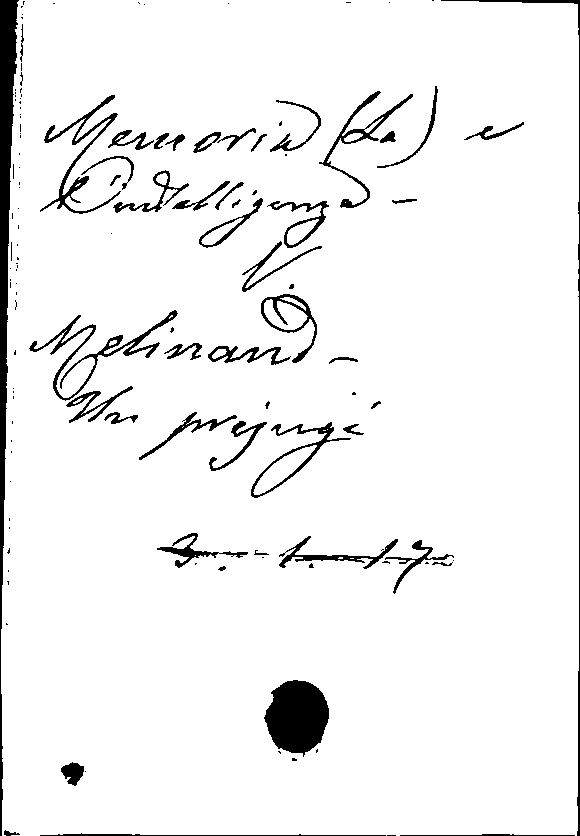 Memoria (La) e
l'intelligenza -
V.
Melinand -
Un préjugé
3. - 1. - 17